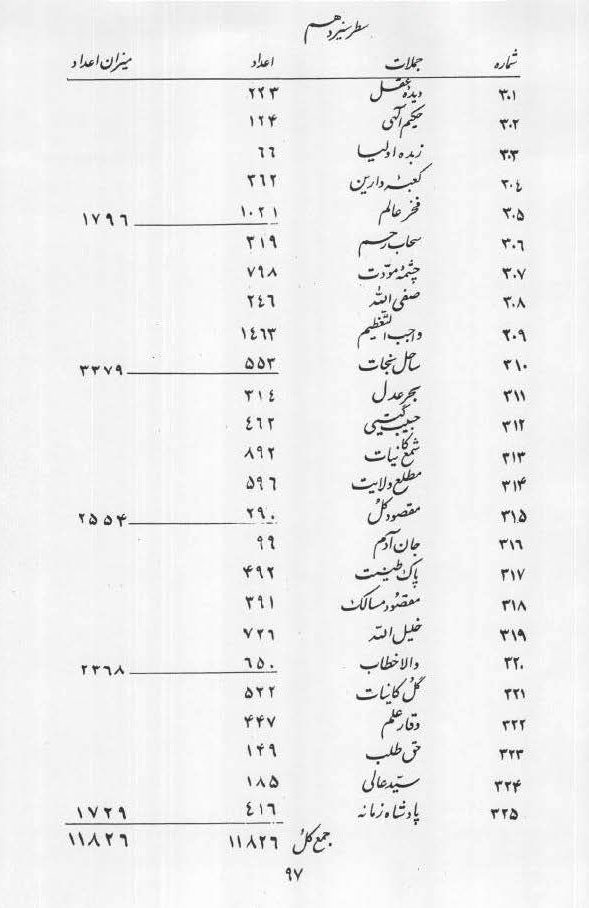 سطر سیزدهم
شماره جملات اعداد میزان اعداد
۳۰۱ دیدهٔ عقل ۲۲۳
۳۰۲ حکیم الهی ۱۲۴
۳۰۳ زبده اولیا ۶۶
۳۰۴ کعبهٔ دارین ۳۶۲
۳۰۵ فخر عالم ۱۰۲۱ ۱۷۹۶
۳۰۶ سحاب رحم ۳۱۹
۳۰۷ چشمهٔ مودّت ۷۹۸
۳۰۸ صفی الله ۲۴۶
۳۰۹ واجب التّعظیم ۱۴۶۳
۳۱۰ ساحل نجات ۵۵۳ ۳۳۷۹
۳۱۱ بحر عدل ۳۱۴
۳۱۲ حبیب گیتی ۴۶۲
۳۱۳ شمع کاینات ۸۹۲
۳۱۴ مطلع ولایت ۵۹۶
۳۱۵ مقصود کلّ ۲۹۰ ۲۵۵۴
۳۱۶ جان آدم ۹۹
۳۱۷ پاک طینت ۴۹۲
۳۱۸ مقصود مسالک ۳۹۱
۳۱۹ خلیل الله ۷۳۶
۳۲۰ والا خطاب ۶۵۰ ۲۳۶۸
۳۲۱ گل کاینات ۵۳۲
۳۲۲ وقار علم ۴۴۷
۳۲۳ حق طلب ۱۴۹
۳۲۴ سیّد عالی ۱۸۵
۳۲۵ پادشاه زمانه ۴۱۶ ۱۷۲۹
جمع کلّ ۱۱۸۲۶ ۱۱۸۲۶
۹۷